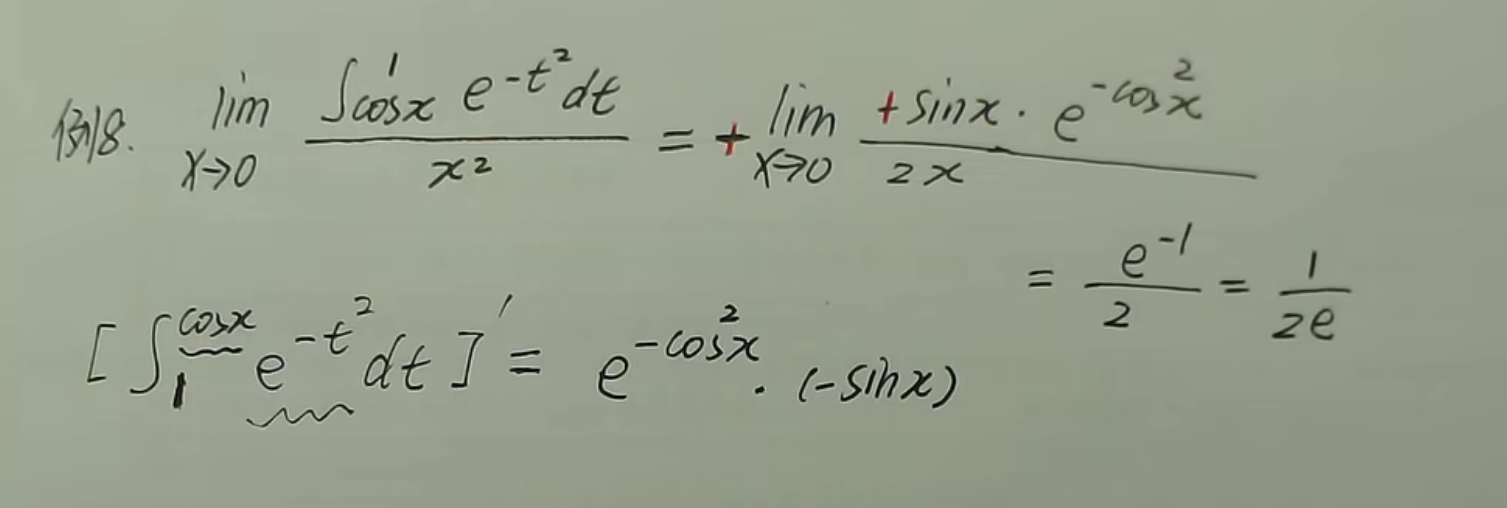 例8. lim_{x→0} \frac{∫_{cosx}^{1} e^{-t²}dt}{x²} = + lim_{x→0} \frac{+sinx · e^{-cos²x}}{2x}
= \frac{e^{-1}}{2} = \frac{1}{2e}
[∫_{1}^{cosx} e^{-t²}dt]' = e^{-cos²x} · (-sinx)